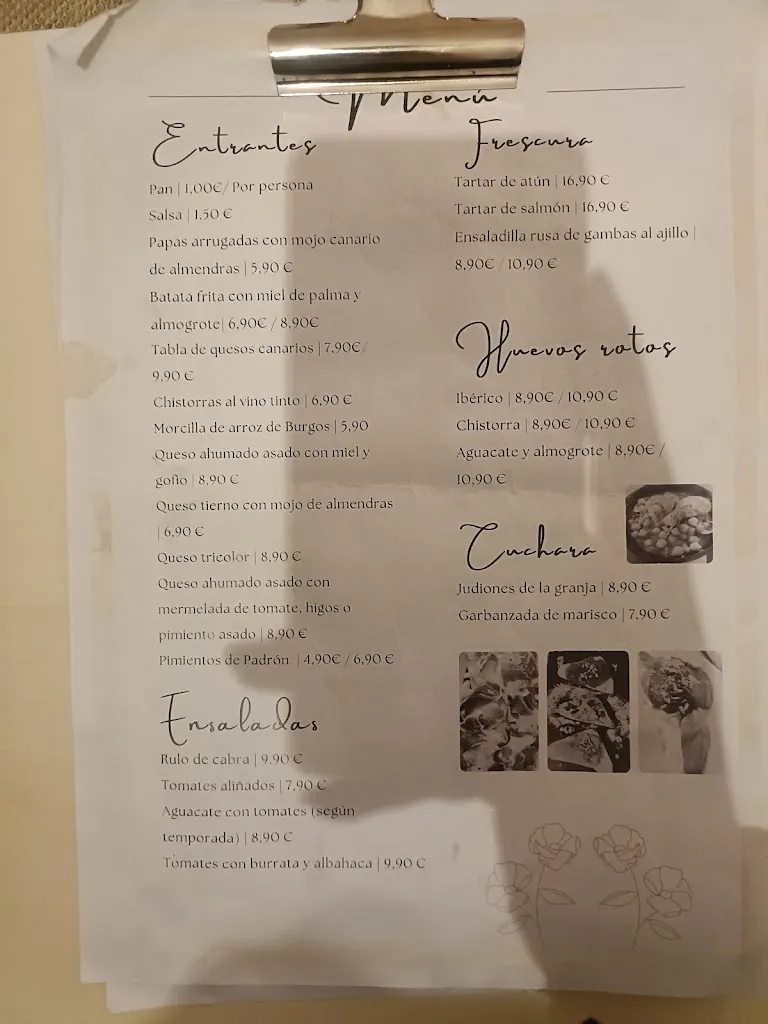 Menú
Entrantes
Pan | 1,00€/ Por persona
Salsa | 1,50 €
Papas arrugadas con mojo canario
de almendras | 5,90 €
Batata frita con miel de palma y
almogrote| 6,90€ / 8,90€
Tabla de quesos canarios | 7,90€/
9,90 €
Chistorras al vino tinto | 6,90 €
Morcilla de arroz de Burgos | 5,90
Queso ahumado asado con miel y
gofio | 8,90 €
Queso tierno con mojo de almendras
| 6,90 €
Queso tricolor | 8,90 €
Queso ahumado asado con
mermelada de tomate, higos o
pimiento asado | 8,90 €
Pimientos de Padrón | 4,90€ / 6,90 €
Ensaladas
Rulo de cabra | 9,90 €
Tomates aliñados | 7,90 €
Aguacate con tomates (según
temporada) | 8,90 €
Tomates con burrata y albahaca | 9,90 €
Frescura
Tartar de atún | 16,90 €
Tartar de salmón | 16,90 €
Ensaladilla rusa de gambas al ajillo |
8,90€ / 10,90 €
Huevos rotos
Ibérico | 8,90€ / 10,90 €
Chistorra | 8,90€ / 10,90 €
Aguacate y almogrote | 8,90€ /
10,90 €
Cuchara
Judiones de la granja | 8,90 €
Garbanzada de marisco | 7,90 €